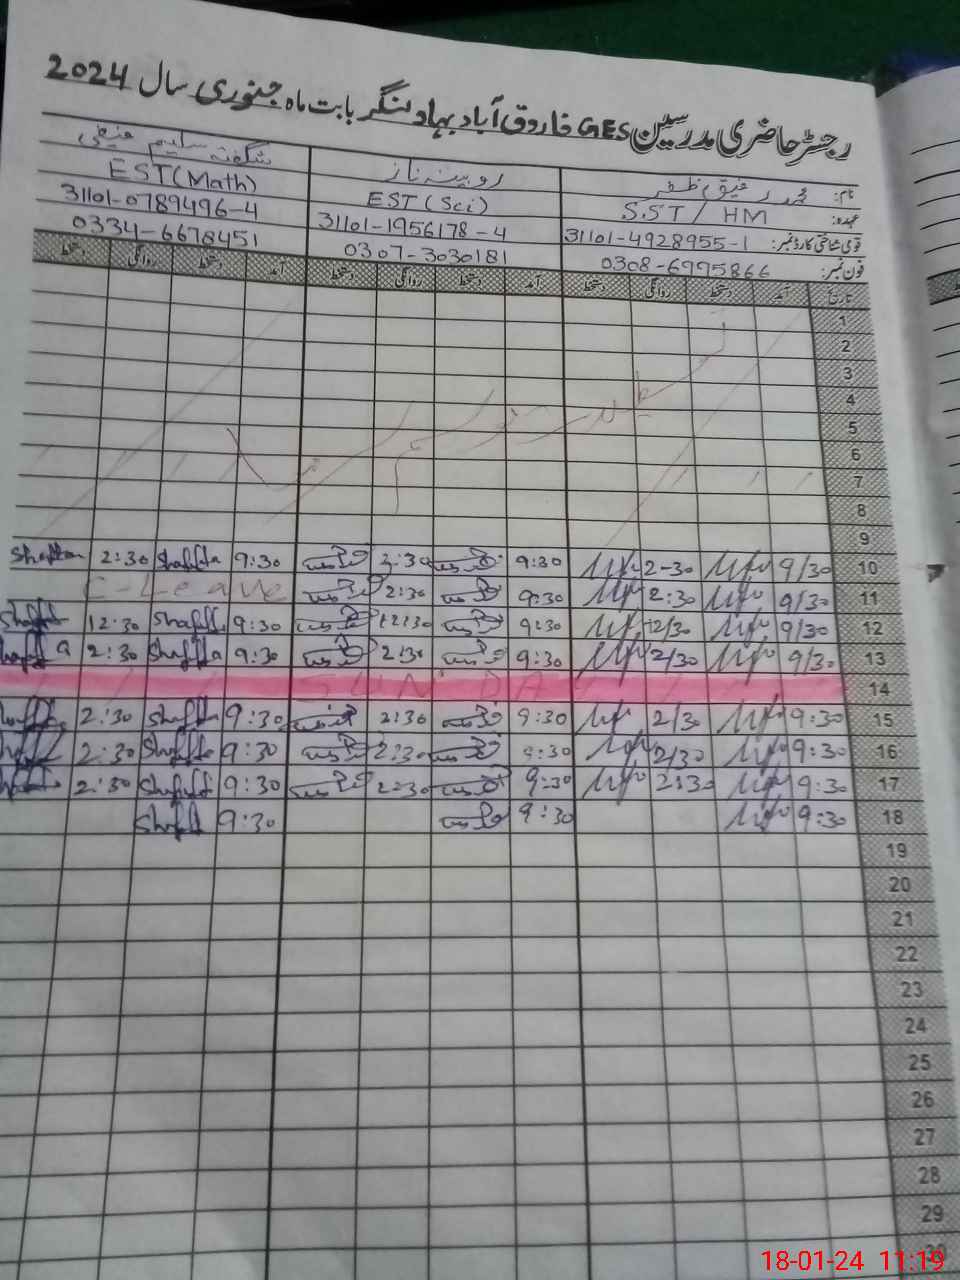 رجسٹر حاضری مدرسین GES فاروق آباد بہاولنگر بابت ماہ جنوری سال 2024
نام: محمد رفیق ظفر روبینہ ناز شگفتہ سلیم حنیفی
عہدہ: SST / HM EST (Sci) EST (Math)
قومی شناختی کارڈ نمبر: 31101-4928955-1 31101-1956178-4 31101-0789496-4
فون نمبر: 0308-6995866 0307-3030181 0334-6678451
تاریخ آمد دستخط روانگی دستخط آمد دستخط روانگی دستخط آمد دستخط روانگی دستخط
1
2
3
4
5
6
7
8
9
10 9/30 2-30 9:30 2:30 9:30 Shaffta 2:30
11 9/30 2:30 9:30 2:30 C-Leave
12 9/30 12/30 9:30 12:30 9:30 Shaffta 12:30
13 9/30 2/30 9:30 2:30 9:30 Shaffta 2:30
14 SUNDAY
15 9:30 2/30 9:30 2:30 9:30 Shaffta 2:30
16 9:30 2/30 9:30 2:30 9:30 Shaffta 2:30
17 9:30 2:30 9:30 2:30 9:30 Shaffta 2:30
18 9:30 9:30 9:30 Shaffta
19
20
21
22
23
24
25
26
27
28
29
30
18-01-24 11:19